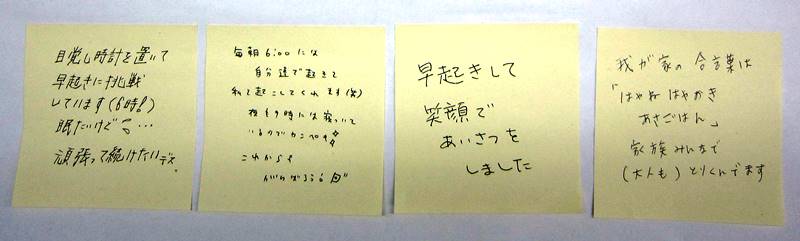 目覚し時計を置いて
早起きに挑戦
しています(6時!)
眠だけど…
頑張って続けたいデス。
毎朝6:00には
自分達で起きて
私も起こしてくれます(笑)
夜も9時には寝って
いるのでカンペキ
これからも
がんばろう
早起きして
笑顔で
あいさつを
しました
我が家の合言葉は
「はやねはやおき
あさごはん」
家族みんなで
(大人も)とりくんでます